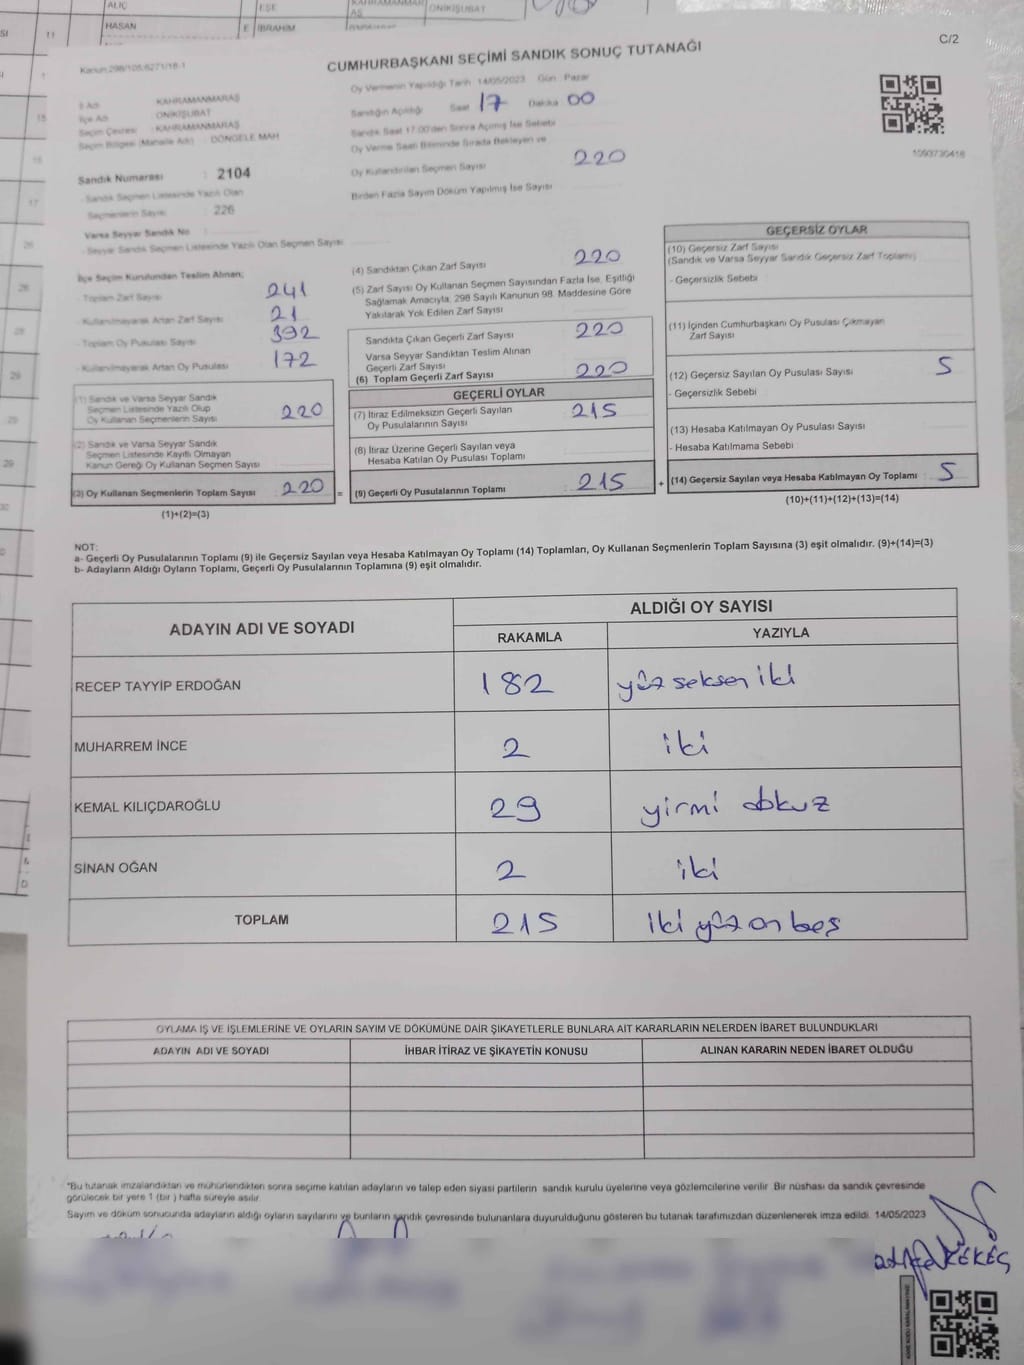 ALIÇ
EŞE
ONİKİŞUBAT
HASAN
E
İBRAHİM
C/2
Kanun:298/105,6271/18-1
CUMHURBAŞKANI SEÇİMİ SANDIK SONUÇ TUTANAĞI
Oy Vermenin Yapıldığı Tarih 14/05/2023 Gün: Pazar
İl Adı KAHRAMANMARAŞ
İlçe Adı ONİKİŞUBAT
Seçim Çevresi : KAHRAMANMARAŞ
Seçim Bölgesi (Mahalle Adı) : DÖNGELE MAH
Sandığın Açıldığı Saat 17 Dakika 00
Sandık Saat 17:00'den Sonra Açılmış İse Sebebi
Oy Verme Saati Bitiminde Sırada Bekleyen ve
Oy Kullandırılan Seçmen Sayısı 220
Birden Fazla Sayım Döküm Yapılmış İse Sayısı
1093730418
Sandık Numarası : 2104
- Sandık Seçmen Listesinde Yazılı Olan
Seçmenlerin Sayısı : 226
Varsa Seyyar Sandık No
- Seyyar Sandık Seçmen Listesinde Yazılı Olan Seçmen Sayısı
İlçe Seçim Kurulundan Teslim Alınan;
- Toplam Zarf Sayısı 241
- Kullanılmayarak Artan Zarf Sayısı 21
- Toplam Oy Pusulası Sayısı 392
- Kullanılmayarak Artan Oy Pusulası 172
(1) Sandık ve Varsa Seyyar Sandık
Seçmen Listesinde Yazılı Olup
Oy Kullanan Seçmenlerin Sayısı 220
(2) Sandık ve Varsa Seyyar Sandık
Seçmen Listesinde Kayıtlı Olmayan
Kanun Gereği Oy Kullanan Seçmen Sayısı
(3) Oy Kullanan Seçmenlerin Toplam Sayısı 220
(1)+(2)=(3)
=
(4) Sandıktan Çıkan Zarf Sayısı 220
(5) Zarf Sayısı Oy Kullanan Seçmen Sayısından Fazla İse, Eşitliği
Sağlamak Amacıyla, 298 Sayılı Kanunun 98. Maddesine Göre
Yakılarak Yok Edilen Zarf Sayısı
Sandıkta Çıkan Geçerli Zarf Sayısı 220
Varsa Seyyar Sandıktan Teslim Alınan
Geçerli Zarf Sayısı
(6) Toplam Geçerli Zarf Sayısı 220
GEÇERLİ OYLAR
(7) İtiraz Edilmeksizin Geçerli Sayılan
Oy Pusulalarının Sayısı 215
(8) İtiraz Üzerine Geçerli Sayılan veya
Hesaba Katılan Oy Pusulası Toplamı
(9) Geçerli Oy Pusulalarının Toplamı 215
+
GEÇERSİZ OYLAR
(10) Geçersiz Zarf Sayısı
(Sandık ve Varsa Seyyar Sandık Geçersiz Zarf Toplamı)
- Geçersizlik Sebebi
(11) İçinden Cumhurbaşkanı Oy Pusulası Çıkmayan
Zarf Sayısı
(12) Geçersiz Sayılan Oy Pusulası Sayısı 5
- Geçersizlik Sebebi
(13) Hesaba Katılmayan Oy Pusulası Sayısı
- Hesaba Katılmama Sebebi
(14) Geçersiz Sayılan veya Hesaba Katılmayan Oy Toplamı 5
(10)+(11)+(12)+(13)=(14)
NOT:
a- Geçerli Oy Pusulalarının Toplamı (9) ile Geçersiz Sayılan veya Hesaba Katılmayan Oy Toplamı (14) Toplamları, Oy Kullanan Seçmenlerin Toplam Sayısına (3) eşit olmalıdır. (9)+(14)=(3)
b- Adayların Aldığı Oyların Toplamı, Geçerli Oy Pusulalarının Toplamına (9) eşit olmalıdır.
ADAYIN ADI VE SOYADI
ALDIĞI OY SAYISI
RAKAMLA YAZIYLA
RECEP TAYYİP ERDOĞAN 182 yüz seksen iki
MUHARREM İNCE 2 iki
KEMAL KILIÇDAROĞLU 29 yirmi dokuz
SİNAN OĞAN 2 iki
TOPLAM 215 iki yüz on beş
OYLAMA İŞ VE İŞLEMLERİNE VE OYLARIN SAYIM VE DÖKÜMÜNE DAİR ŞİKAYETLERLE BUNLARA AİT KARARLARIN NELERDEN İBARET BULUNDUKLARI
ADAYIN ADI VE SOYADI İHBAR İTİRAZ VE ŞİKAYETİN KONUSU ALINAN KARARIN NEDEN İBARET OLDUĞU
*Bu tutanak imzalandıktan ve mühürlendikten sonra seçime katılan adayların ve talep eden siyasi partilerin sandık kurulu üyelerine veya gözlemcilerine verilir. Bir nüshası da sandık çevresinde
görülecek bir yere 1 (bir ) hafta süreyle asılır.
Sayım ve döküm sonucunda adayların aldığı oyların sayılarını ve bunların sandık çevresinde bulunanlara duyurulduğunu gösteren bu tutanak tarafımızdan düzenlenerek imza edildi. 14/05/2023
KEKEÇ